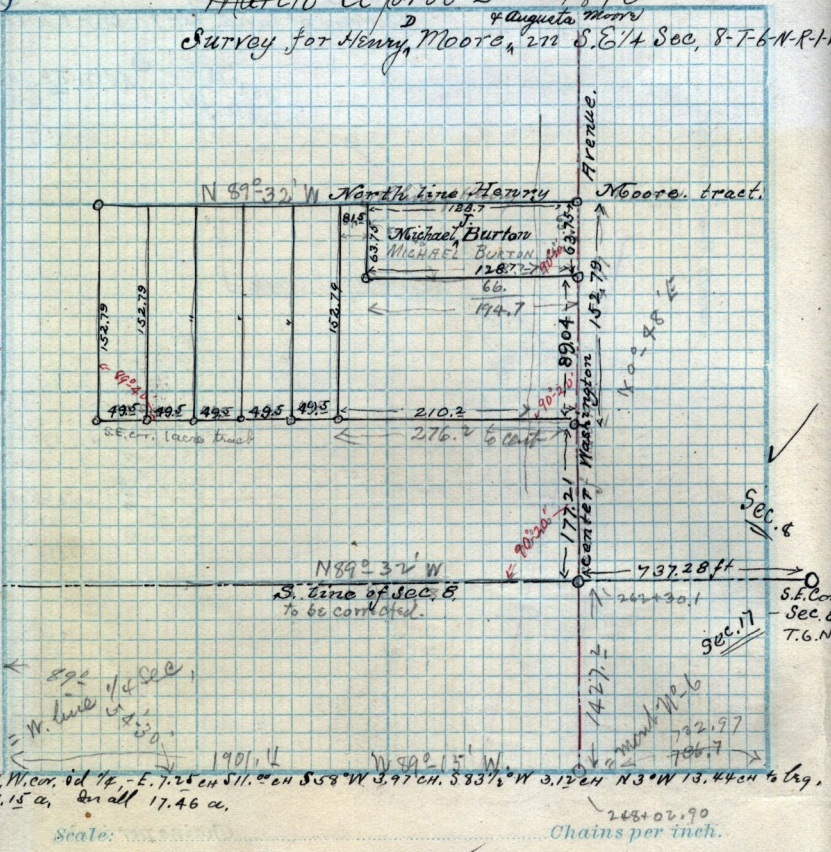 D & Augusta Moore
Survey for Henry Moore, in S.E 1/4 Sec, 8-T-6-N-R-1-
Avenue.
N 89°-32' W North line Henry Moore. tract.
128.7
81.5
J.
Michael Burton
MICHAEL BURTON
63.75
63.75
90°-20'
128.7
66.
194.7
152.79
152.79
152.79
152.79
89.04
N 0°-48' E
89°-40'
90°-20'
49.5 49.5 49.5 49.5 49.5 210.2
S.E. cor. 1 acre tract
276.2 to cent
center Washington
177.21
90°-20'
Sec. 8
N 89°-32' W
737.28 ft
S. line of Sec. 8.
to be corrected.
262+30.1
S.E. Cor
Sec. 8
T.6.N
Sec. 17
1427.2
89°
54'30"
= W. line 1/4 Sec,
= mont No-6
722.97
706.7
1901.4 N 89°-15' W.
W. cor. sd 1/4, - E. 7.25 CH S 11.00 CH S 58° W 3.97 CH. S 83 1/2° W 3.12 CH N 3° W 13.44 CH to beg,
.15 a, In all 17.46 a,
248+02.90
Scale: Chains per inch.